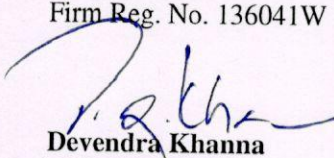 Firm Reg. No. 136041W
Devendra Khanna